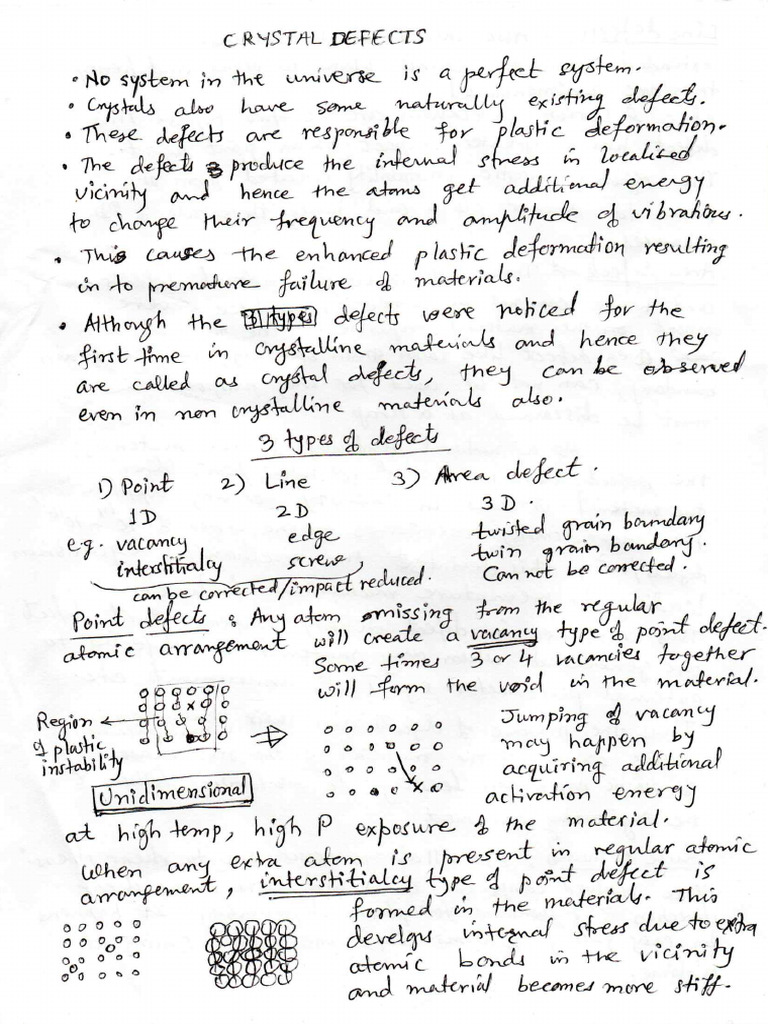 CRYSTAL DEFECTS
• No system in the universe is a perfect system.
• Crystals also have some naturally existing defects.
• These defects are responsible for plastic deformation.
• The defects produce the internal stress in localised
vicinity and hence the atoms get additional energy
to change their frequency and amplitude of vibrations.
• This causes the enhanced plastic deformation resulting
in to premature failure of materials.
• Although the 3 types defects were noticed for the
first time in crystalline materials and hence they
are called as crystal defects, they can be observed
even in non crystalline materials also.
3 types of defects
1) Point 2) Line 3) Area defect.
1D 2D 3D.
e.g. vacancy edge twisted grain boundary
interstitialcy screw twin grain boundary.
can be corrected/impact reduced. Can not be corrected.
Point defects : Any atom missing from the regular
atomic arrangement will create a vacancy type of point defect.
Some times 3 or 4 vacancies together
will form the void in the material.
Region
of plastic
instability
Jumping of vacancy
may happen by
acquiring additional
Unidimensional activation energy
at high temp, high P exposure of the material.
When any extra atom is present in regular atomic
arrangement, interstitialcy type of point defect is
formed in the materials. This
develops internal stress due to extra
atomic bonds in the vicinity
and material becomes more stiff.